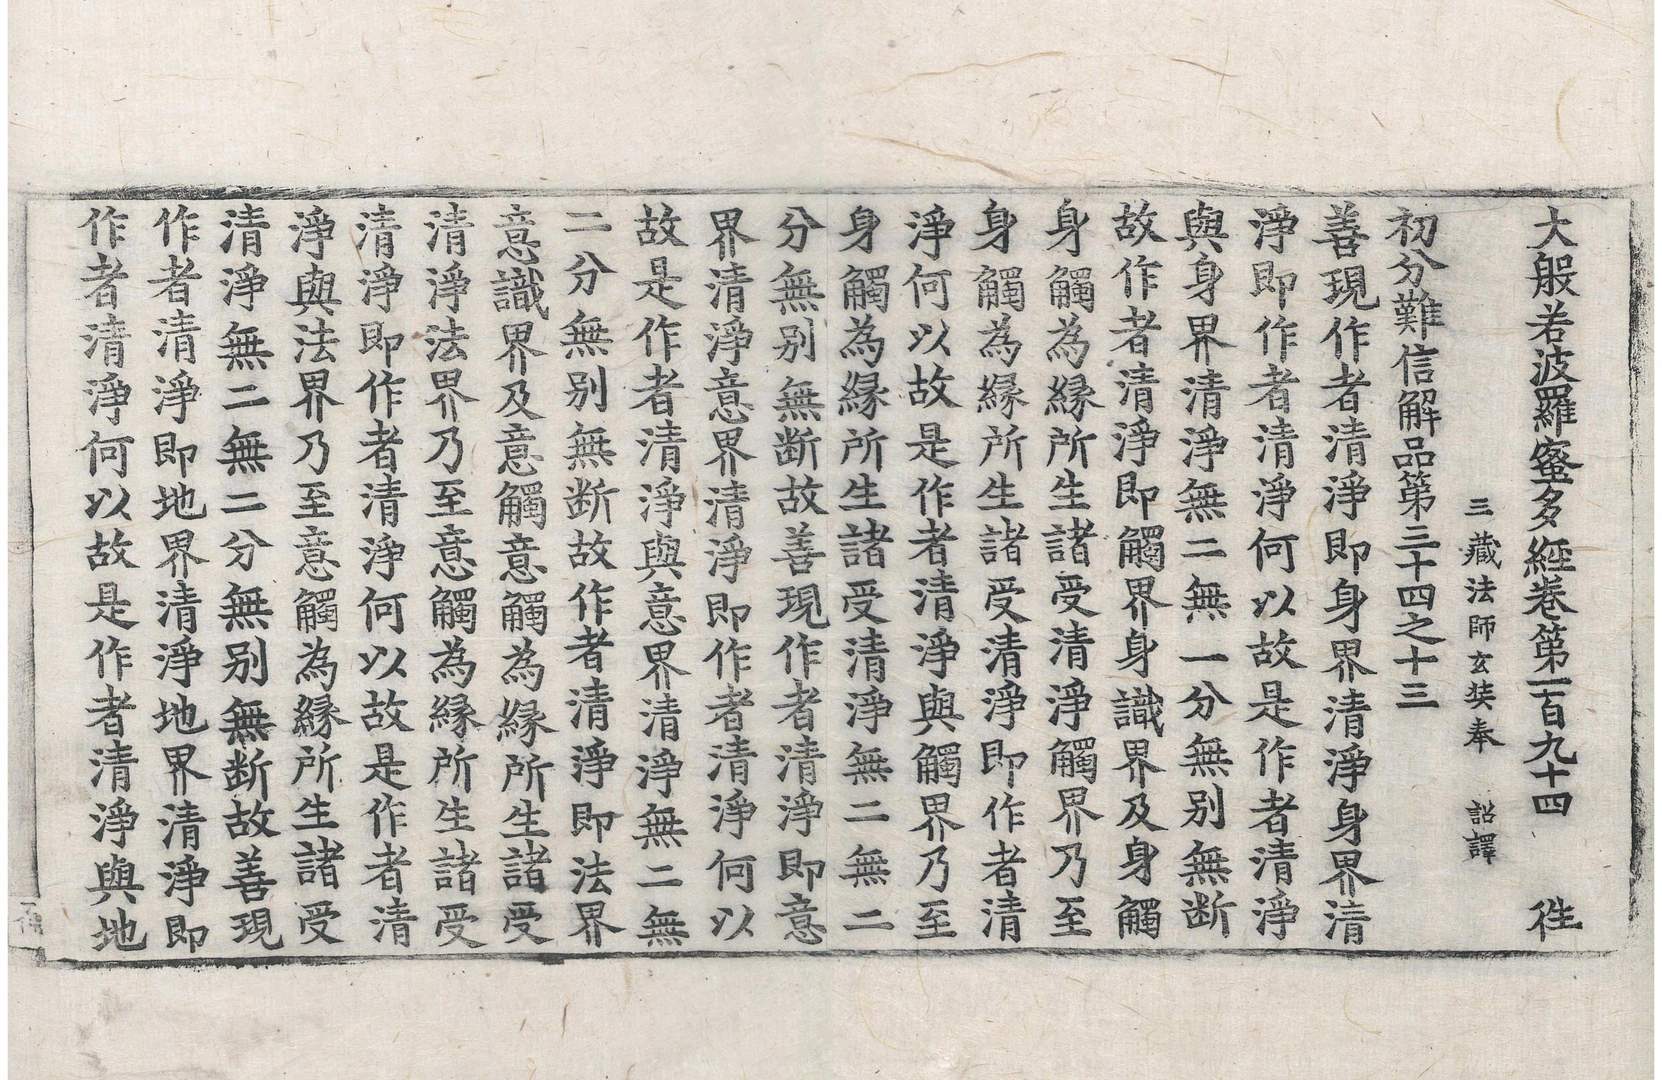 大般若波羅蜜多經卷第一百九十四　徃
三藏法師玄奘奉　詔譯
初分難信解品第三十四之十三
善現作者清淨即身界清淨身界清
淨即作者清淨何以故是作者清淨
與身界清淨無二無一分無别無断
故作者清淨即觸界身識界及身觸
身觸為縁所生諸受清淨觸界乃至
身觸為縁所生諸受清淨即作者清
淨何以故是作者清淨與觸界乃至
身觸為縁所生諸受清淨無二無二
分無别無断故善現作者清淨即意
界清淨意界清淨即作者清淨何以
故是作者清淨與意界清淨無二無
二分無别無断故作者清淨即法界
意識界及意觸意觸為縁所生諸受
清淨法界乃至意觸為縁所生諸受
清淨即作者清淨何以故是作者清
淨與法界乃至意觸為縁所生諸受
清淨無二無二分無别無断故善現
作者清淨即地界清淨地界清淨即
作者清淨何以故是作者清淨與地